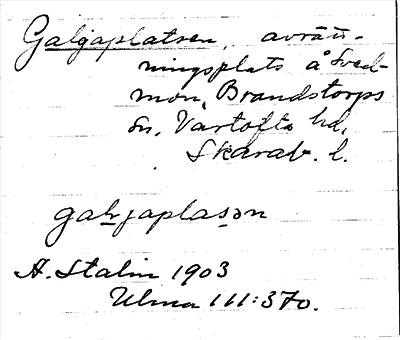 Galgaplatsen, avrätt-
ningsplats å Sved-
mon, Brandstorps
sn. Vartofta hd,
Skarab. l.
galgaplasən
A. Stalin 1903
Ulma 111:370.